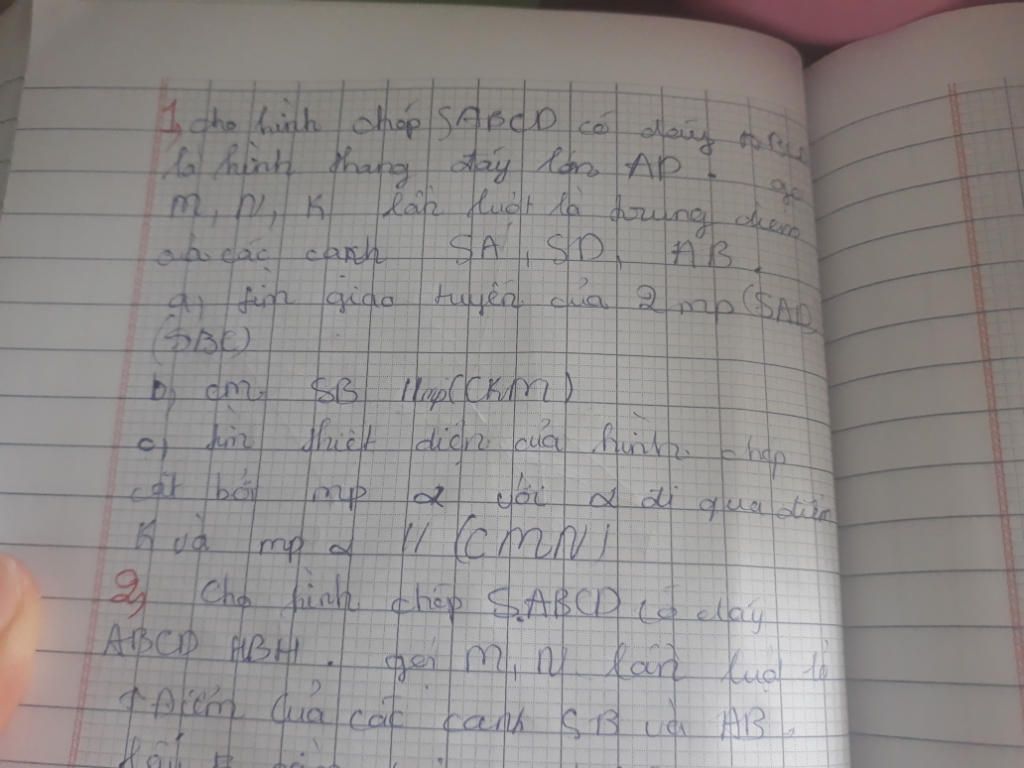 1, cho hình chóp SABCD có đáy
là hình thang đáy lớn AD. gọi
M, N, K lần lượt là trung điểm
của các cạnh SA, SD, AB.
a, tìm giao tuyến của 2 mp (SAD
(SBC)
b, cm SB // mp (CKM)
c, tìm thiết diện của hình chóp
cắt bởi mp α với α đi qua điểm
K và mp α // (CMN)
2, Cho hình chóp S.ABCD có đáy
ABCD HBH. gọi M, N lần lượt là
Điểm của các cạnh SB và AB,